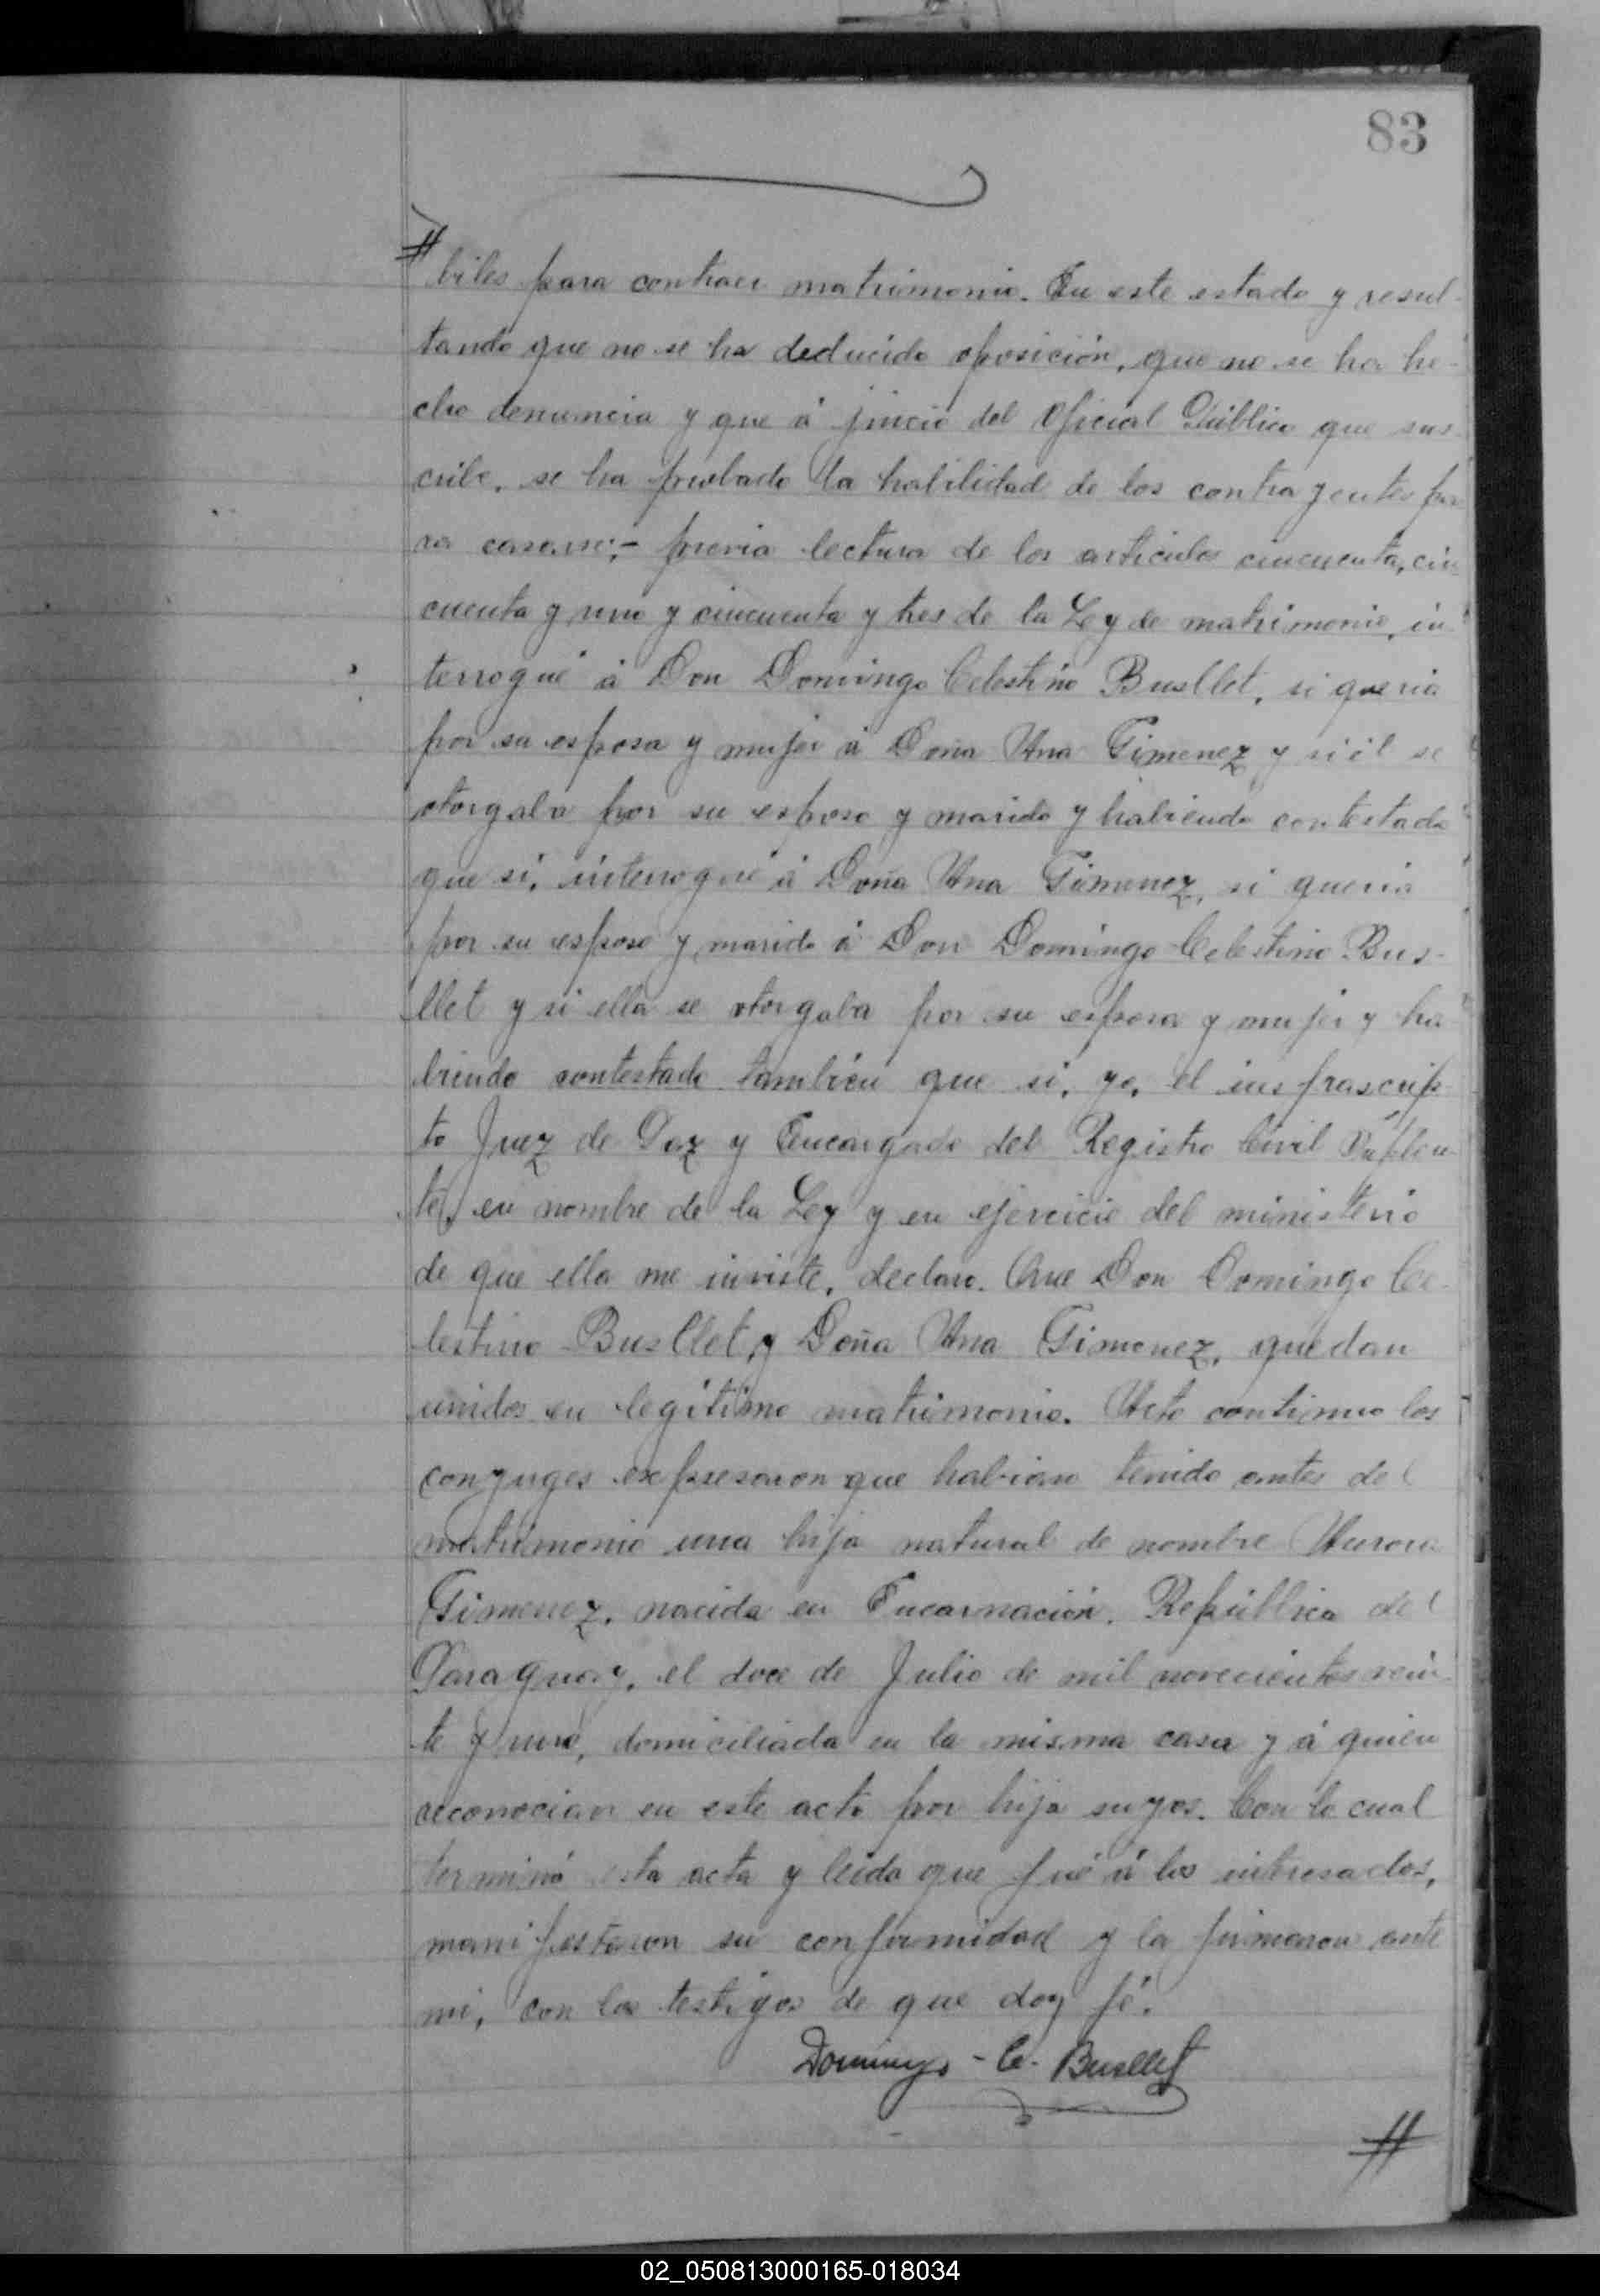 83
# biles para contraer matrimonio. En este estado y resul-
tando que no se ha deducido oposición, que no se ha he-
cho denuncia y que á juicio del Oficial Público que sus-
cribe, se ha probado la habilidad de los contrayentes pa
ra casarse;- previa lectura de los artículos cincuenta, cin-
cuenta y uno y cincuenta y tres de la Ley de matrimonio, in-
terrogué á Don Domingo Celestino Busllet, si queria
por su esposa y mujer á Doña Ana Gimenez y si él se
otorgaba por su esposo y marido y habiendo contestado
que si, interrogué á Doña Ana Gimenez, si queria
por su esposo y marido á Don Domingo Celestino Bus-
llet y si ella se otorgaba por su esposa y mujer y ha
biendo contestado también que si, yo, el insfrascrip-
to Juez de Paz y Encargado del Registro Civil Suplen-
te, en nombre de la Ley y en ejercicio del ministerio
de que ella me inviste, declaro. Que Don Domingo Ce-
lestino Busllet, y Doña Ana Gimenez, quedan
unidos en legítimo matrimonio. Acto continuo los
conyuges expresaron que habian tenido antes del
matrimonio una hija natural de nombre Aurora
Gimenez, nacida en Encarnación, República del
Paraguay, el doce de Julio de mil novecientos vein-
te y uno, domiciliada en la misma casa y á quien
reconocian en este acto por hija suyos. Con lo cual
terminó esta acta y leida que fué á los interesados,
manifestaron su conformidad y la firmaron ante
mi, con los testigos de que doy fé.
Domingo - C. Busllet
#
02_050813000165-018034